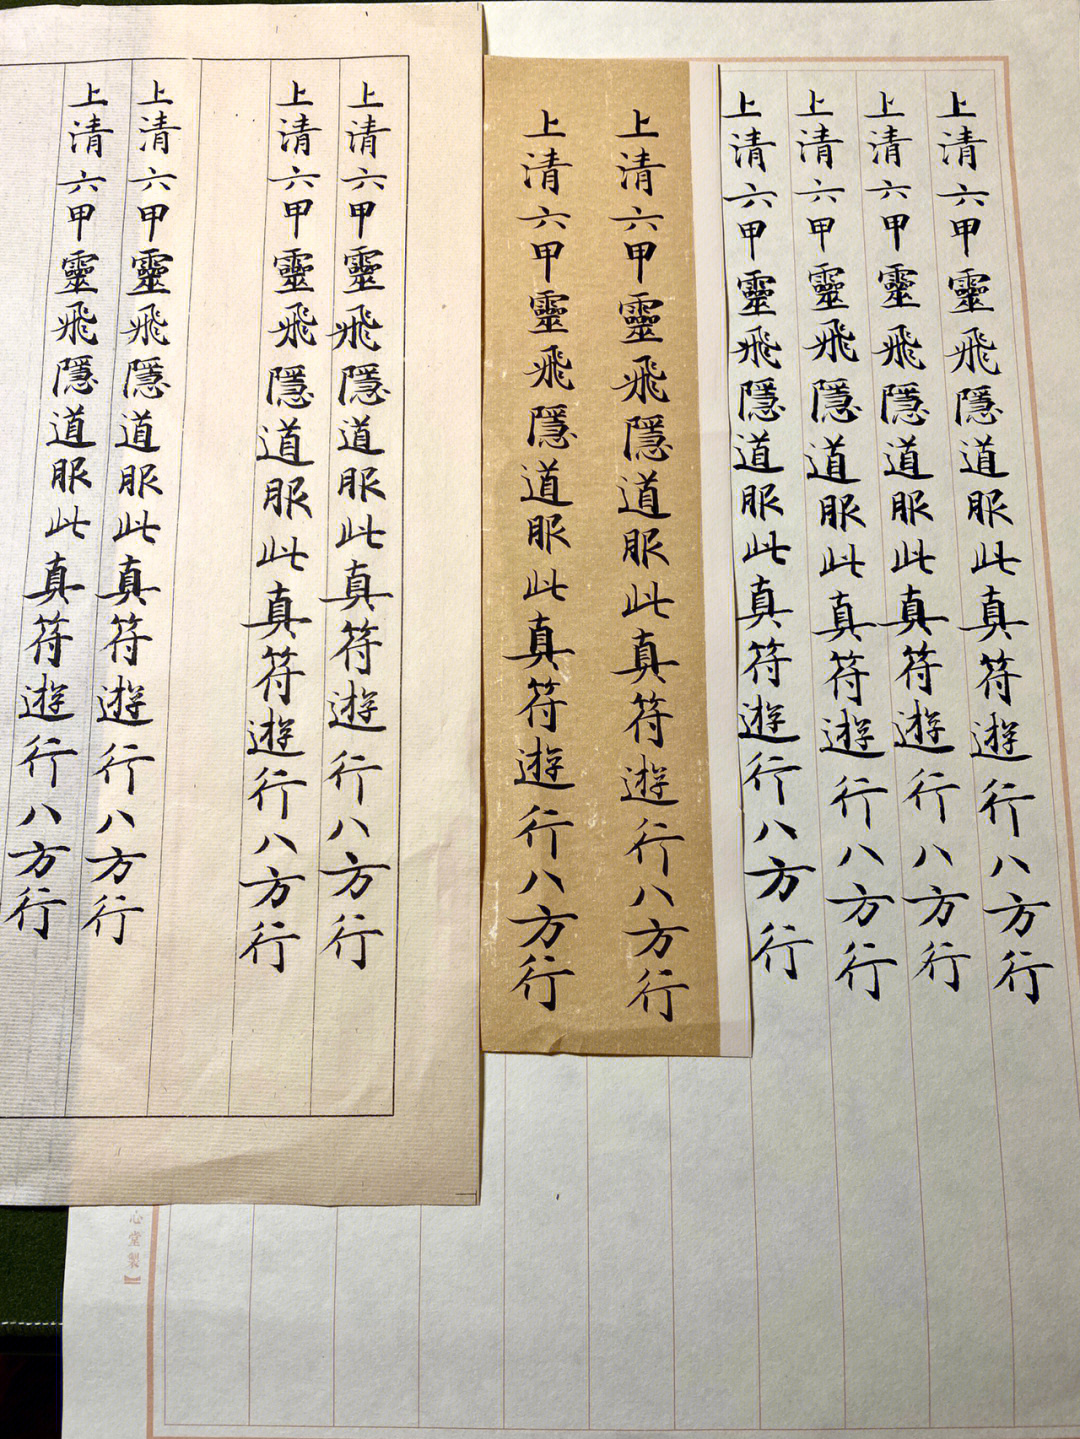 上清六甲靈飛隱道服此真符遊行八方行
上清六甲靈飛隱道服此真符遊行八方行
上清六甲靈飛隱道服此真符遊行八方行
上清六甲靈飛隱道服此真符遊行八方行
上清六甲靈飛隱道服此真符遊行八方行
上清六甲靈飛隱道服此真符遊行八方行
上清六甲靈飛隱道服此真符遊行八方行
上清六甲靈飛隱道服此真符遊行八方行
上清六甲靈飛隱道服此真符遊行八方行
上清六甲靈飛隱道服此真符遊行八方行
心堂製】